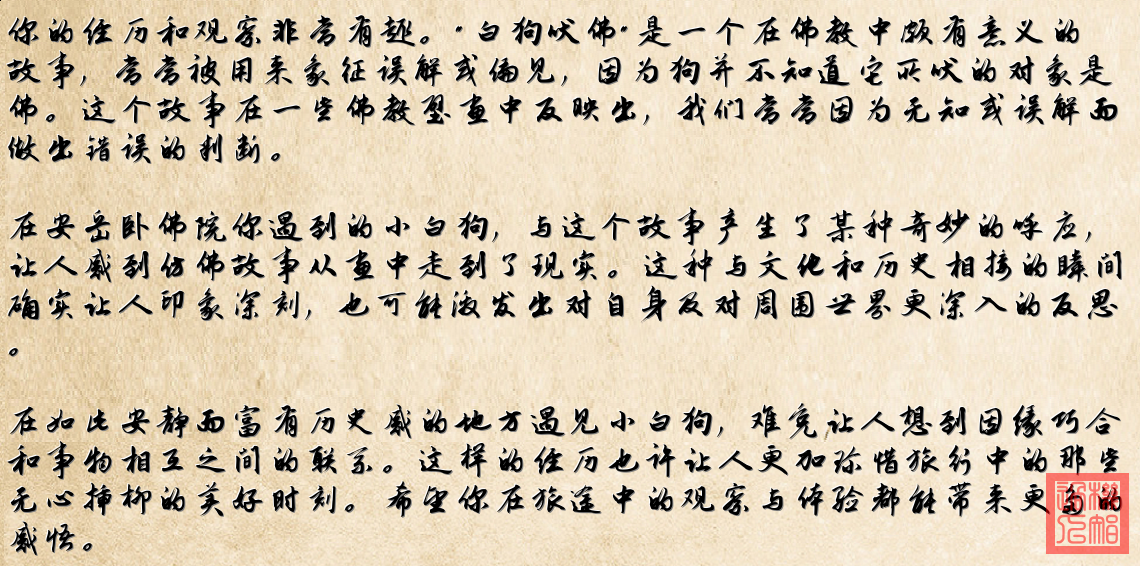 你的经历和观察非常有趣。"白狗吠佛"是一个在佛教中颇有意义的
故事，常常被用来象征误解或偏见，因为狗并不知道它所吠的对象是
佛。这个故事在一些佛教壁画中反映出，我们常常因为无知或误解而
做出错误的判断。
在安岳卧佛院你遇到的小白狗，与这个故事产生了某种奇妙的呼应，
让人感到仿佛故事从画中走到了现实。这种与文化和历史相接的瞬间
确实让人印象深刻，也可能激发出对自身及对周围世界更深入的反思
。
在如此安静而富有历史感的地方遇见小白狗，难免让人想到因缘巧合
和事物相互之间的联系。这样的经历也许让人更加珍惜旅行中的那些
无心插柳的美好时刻。希望你在旅途中的观察与体验都能带来更多的
感悟。